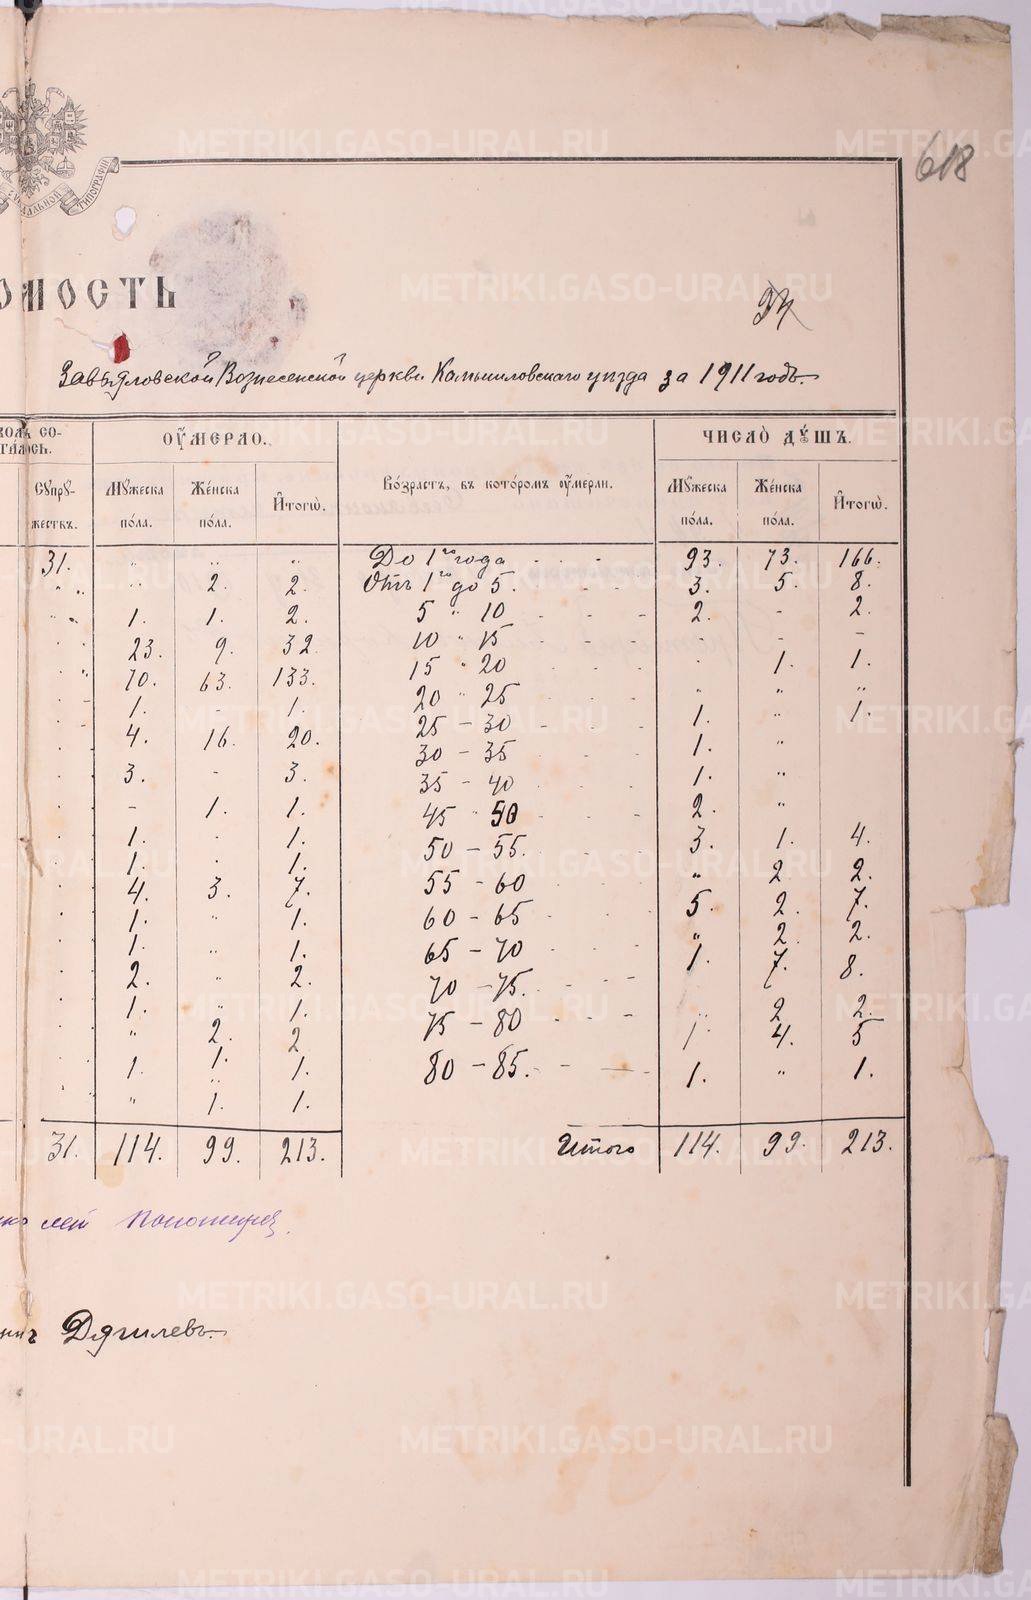 618
СѴНОДАЛЬНОЙ ТИПОГРАФІИ
ОМОСТЬ
Завьяловской Вознесенской церкви Камышловскаго уѣзда за 1911 годъ.
ОУМЕРЛО. ЧИСЛО ДУШЪ.
Супру-жествъ. Мужеска пола. Женска пола. Итогѡ. Возрастъ, въ которомъ оумерли. Мужеска пола. Женска пола. Итогѡ.
31. " " " До 1го года 93. 73. 166.
" " 2. 2. Отъ 1го до 5. 3. 5. 8.
" 1. 1. 2. 5 " 10 2. - 2.
23. 9. 32. 10 " 15 - - -
" 70. 63. 133. 15 " 20 . 1. 1.
1. - 1. 20 " 25 " " "
4. 16. 20. 25 - 30 1. " 1.
3. - 3. 30 - 35 1. "
- 1. 1. 35 - 40 1. "
1. . 1. 45 " 50 2. "
1. . 1. 50 - 55. 3. 1. 4.
4. 3. 7. 55 - 60 " 2. 2.
1. " 1. 60 - 65 5. 2. 7.
1. " 1. 65 - 70 " 2. 2.
2. " 2. 70 - 75. 1. 7. 8.
1. " 1. 75 - 80 " 2 2.
" 2. 2 1. 4. 5
1. 1. 1. 80 - 85. 1. " 1.
" 1. 1.
31. 114. 99. 213. Итого 114. 99. 213.
Дягилевъ
METRIKI.GASO-URAL.RU